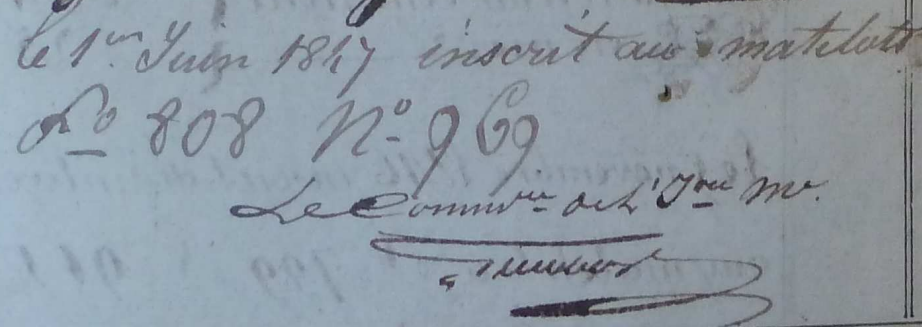 le 1er Juin 1847 inscrit aux matelots
fo 808 No 969
Le Commre de l'Ion Me